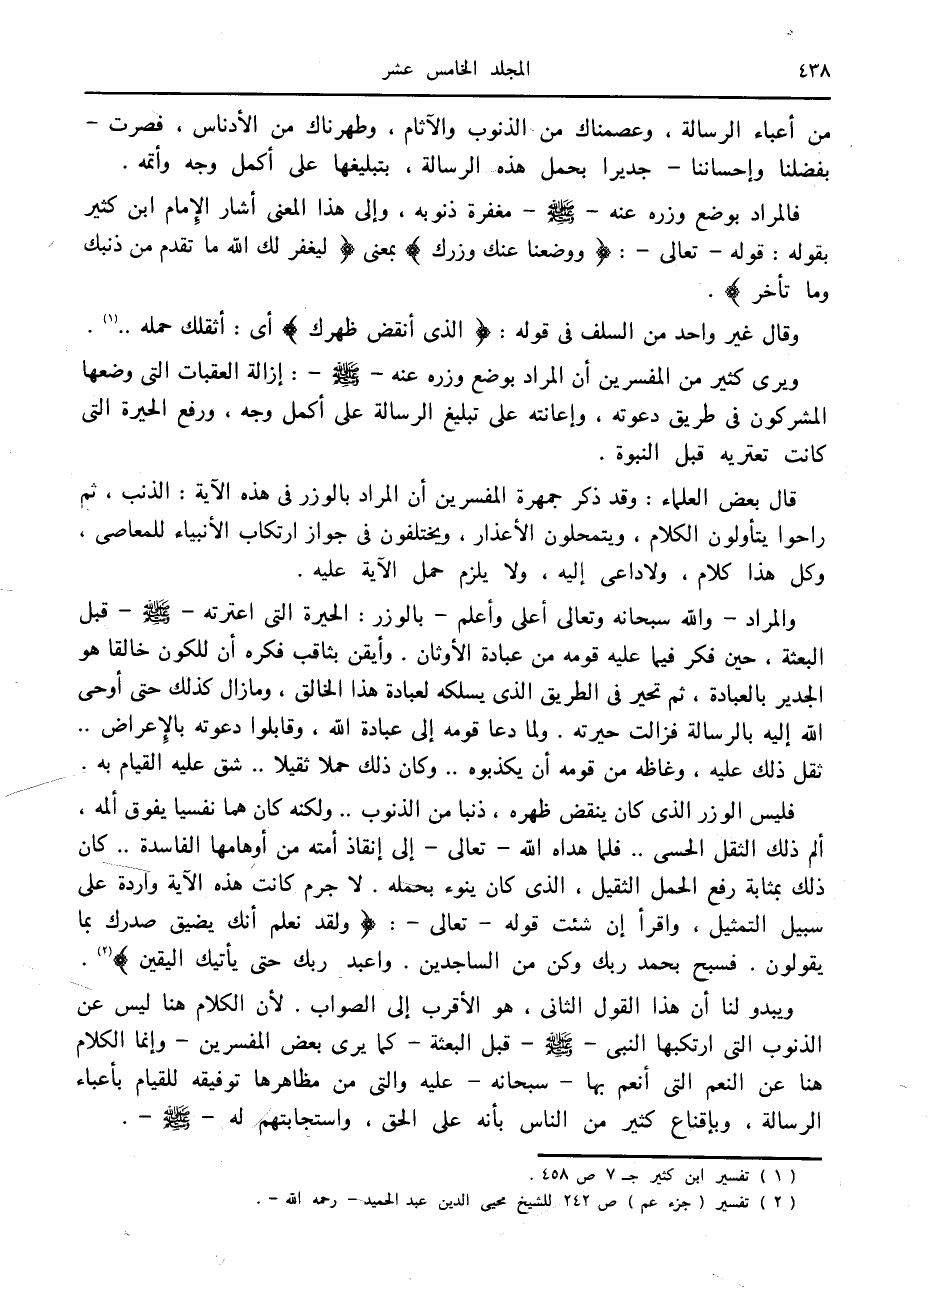 ٤٣٨ المجلد الخامس عشر
من أعباء الرسالة ، وعصمناك من الذنوب والآثام ، وطهرناك من الأدناس ، فصرت –
بفضلنا وإحساننا – جديرا بحمل هذه الرسالة ، بتبليغها على أكمل وجه وأتمه .
فالمراد بوضع وزره عنه – ﷺ – مغفرة ذنوبه ، وإلى هذا المعنى أشار الإمام ابن كثير
بقوله : قوله – تعالى – : ﴿ ووضعنا عنك وزرك ﴾ بمعنى ﴿ ليغفر لك الله ما تقدم من ذنبك
وما تأخر ﴾ .
وقال غير واحد من السلف فى قوله : ﴿ الذى أنقض ظهرك ﴾ أى : أثقلك حمله ..(١) .
ويرى كثير من المفسرين أن المراد بوضع وزره عنه – ﷺ – : إزالة العقبات التى وضعها
المشركون فى طريق دعوته ، وإعانته على تبليغ الرسالة على أكمل وجه ، ورفع الحيرة التى
كانت تعتريه قبل النبوة .
قال بعض العلماء : وقد ذكر جمهرة المفسرين أن المراد بالوزر فى هذه الآية : الذنب ، ثم
راحوا يتأولون الكلام ، ويتمحلون الأعذار ، ويختلفون فى جواز ارتكاب الأنبياء للمعاصى ،
وكل هذا كلام ، ولاداعى إليه ، ولا يلزم حمل الآية عليه .
والمراد – والله سبحانه وتعالى أعلى وأعلم – بالوزر : الحيرة التى اعترته – ﷺ – قبل
البعثة ، حين فكر فيما عليه قومه من عبادة الأوثان . وأيقن بثاقب فكره أن للكون خالقا هو
الجدير بالعبادة ، ثم تحير فى الطريق الذى يسلكه لعبادة هذا الخالق ، ومازال كذلك حتى أوحى
الله إليه بالرسالة فزالت حيرته . ولما دعا قومه إلى عبادة الله ، وقابلوا دعوته بالإعراض ..
ثقل ذلك عليه ، وغاظه من قومه أن يكذبوه .. وكان ذلك حملا ثقيلا .. شق عليه القيام به .
فليس الوزر الذى كان ينقض ظهره ، ذنبا من الذنوب .. ولكنه كان هما نفسيا يفوق ألمه ،
ألم ذلك الثقل الحسى .. فلما هداه الله – تعالى – إلى إنقاذ أمته من أوهامها الفاسدة .. كان
ذلك بمثابة رفع الحمل الثقيل ، الذى كان ينوء بحمله . لا جرم كانت هذه الآية واردة على
سبيل التمثيل ، واقرأ إن شئت قوله – تعالى – : ﴿ ولقد نعلم أنك يضيق صدرك بما
يقولون . فسبح بحمد ربك وكن من الساجدين . واعبد ربك حتى يأتيك اليقين ﴾(٢) .
ويبدو لنا أن هذا القول الثانى ، هو الأقرب إلى الصواب . لأن الكلام هنا ليس عن
الذنوب التى ارتكبها النبى – ﷺ – قبل البعثة – كما يرى بعض المفسرين – وإنما الكلام
هنا عن النعم التى أنعم بها – سبحانه – عليه والتى من مظاهرها توفيقه للقيام بأعباء
الرسالة ، وبإقناع كثير من الناس بأنه على الحق ، واستجابتهم له – ﷺ – .
( ١ ) تفسير ابن كثير جـ ٧ ص ٤٥٨ .
( ٢ ) تفسير ( جزء عم ) ص ٢٤٢ للشيخ محيى الدين عبد الحميد – رحمه الله – .